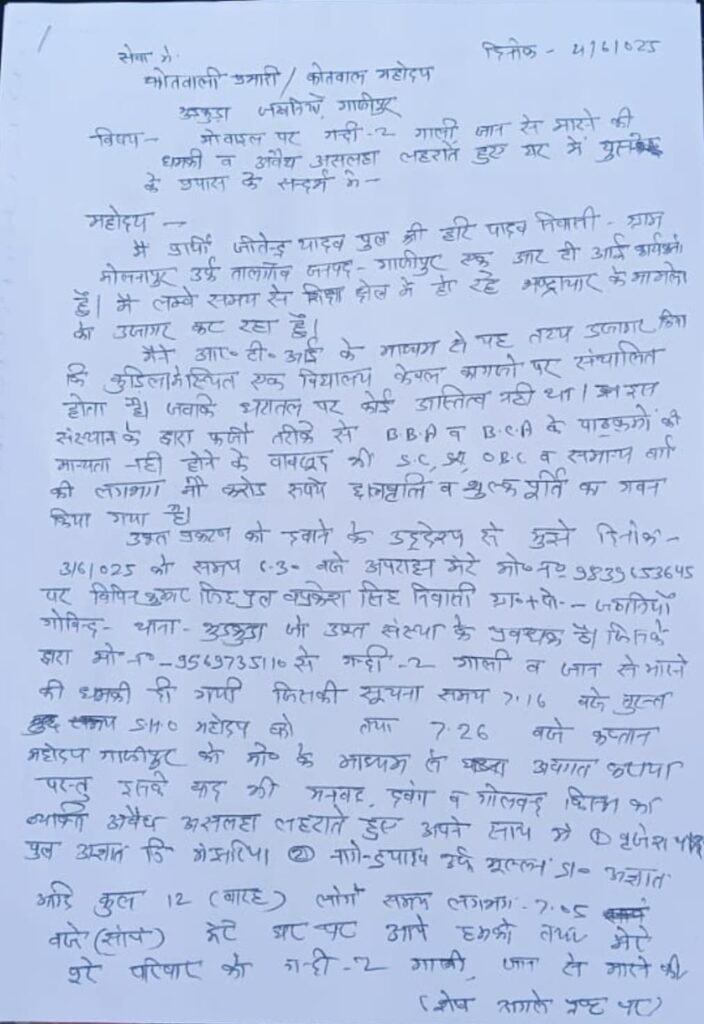 1
सेवा में                                   दिनांक - 4/6/025
कोतवाली प्रभारी / कोतवाल महोदय
भुड़कुड़ा जखनियाँ, गाजीपुर
विषय - मोबाइल पर गन्दी-2 गाली जान से मारने की
धमकी व अवैध असलहा लहराते हुए घर में घुसने
के प्रयास के सन्दर्भ में -
महोदय -
मैं प्रार्थी जीतेन्द्र यादव पुत्र श्री हरि यादव निवासी - ग्राम
उर्फ तालगाँव जनपद - गाजीपुर एक आर टी आई कार्यकर्ता
हूँ। मैं लम्बे समय से शिक्षा क्षेत्र में हो रहे भ्रष्टाचार के मामलो
को उजागर कर रहा हूँ।
मैने आर॰ टी॰ आई के माध्यम से यह तथ्य उजागर किया
कि स्थित एक विद्यालय केवल कागजो पर संचालित
होता है। जबकि धरातल पर कोई अस्तित्व नही था। इस
संस्थान के द्वारा फर्जी तरीके से B.B.A व B.C.A के पाठ्यक्रमो की
मान्यता नही होने के वावजूद भी S.C, ST, OBC व सामान्य वर्ग
की लगभग नौ करोड रुपये छात्रवृत्ति व शुल्क पूर्ति का गबन
किया गया है।
उक्त प्रकरण को दबाने के उद्देश्य से मुझे दिनांक -
3/6/025 को समय 6.30 बजे अपराह्न मेरे मो॰ न॰ 9839653645
पर विपिन कुमार सिंह पुत्र सिंह निवासी ग्रा॰+पो॰ - जखनियाँ
गोविन्द - थाना - भुड़कुड़ा जो उक्त संस्था के प्रबन्धक है। जिनके
द्वारा मो॰ न॰ - 9569735110 से गन्दी-2 गाली व जान से मारने
की धमकी दी गयी जिसकी सूचना समय 7.16 बजे तुरन्त
S.H.O महोदय को तथा 7.26 बजे कप्तान
महोदय गाजीपुर को मो॰ के माध्यम से अवगत कराया
परन्तु इसके बाद भी मनबढ, दबंग व गोलबन्द किस्म का
व्यक्ति अवैध असलहा लहराते हुए अपने साथ में ① बृजेश
पुत्र अज्ञात नि ② उर्फ भुल्लन S/o अज्ञात
आदि कुल 12 (बारह) लोगो समय लगभग - 7.05
बजे (सायं) मेरे घर पर आये हमको तथा मेरे
पूरे परिवार को गन्दी-2 गाली, जान से मारने की
(शेष अगले पृष्ठ पर)